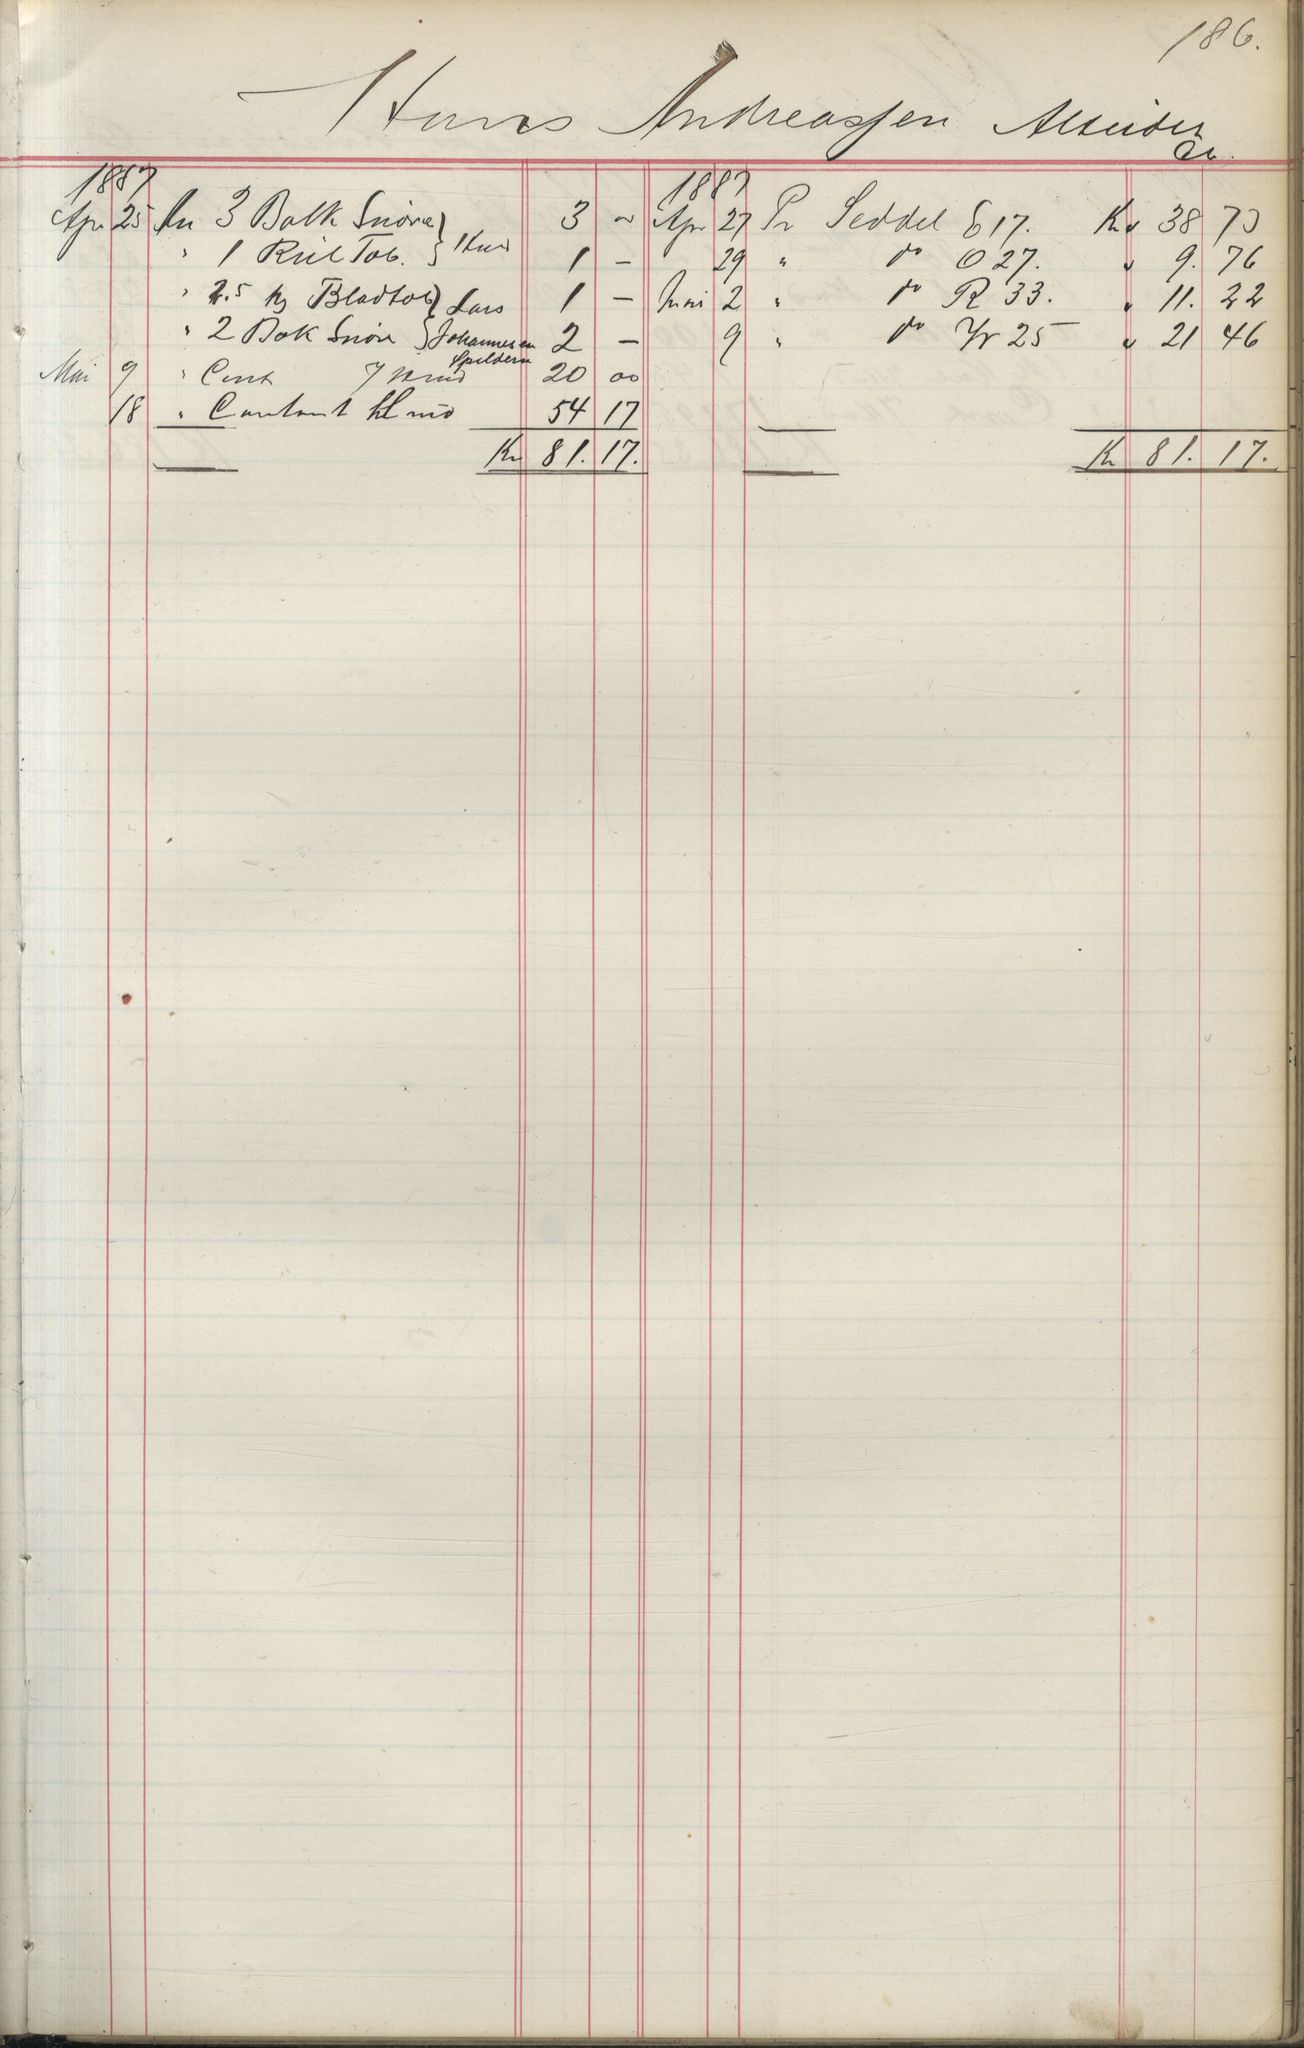 186.
Hans Andreassen Alteidet
Cr.
1887 1887
Apr 25 An 3 Bolk Snöre } 3 " Apr 27 Pr Seddel E 17. Kr 38 73
" 1 Rul Tob. } Hans 1 — 29 " do O 27. " 9. 76
" 2.5 Kg Bladtob } Lars 1 — Mai 2 " do R 33. " 11. 22
" 2 Bok Snöre } Johannesen 2 — 9 " do Yr 25 " 21 46
Spildern
Mai 9 " Cont 20 00
18 " Contant 54 17
Kr 81. 17. Kr 81. 17.